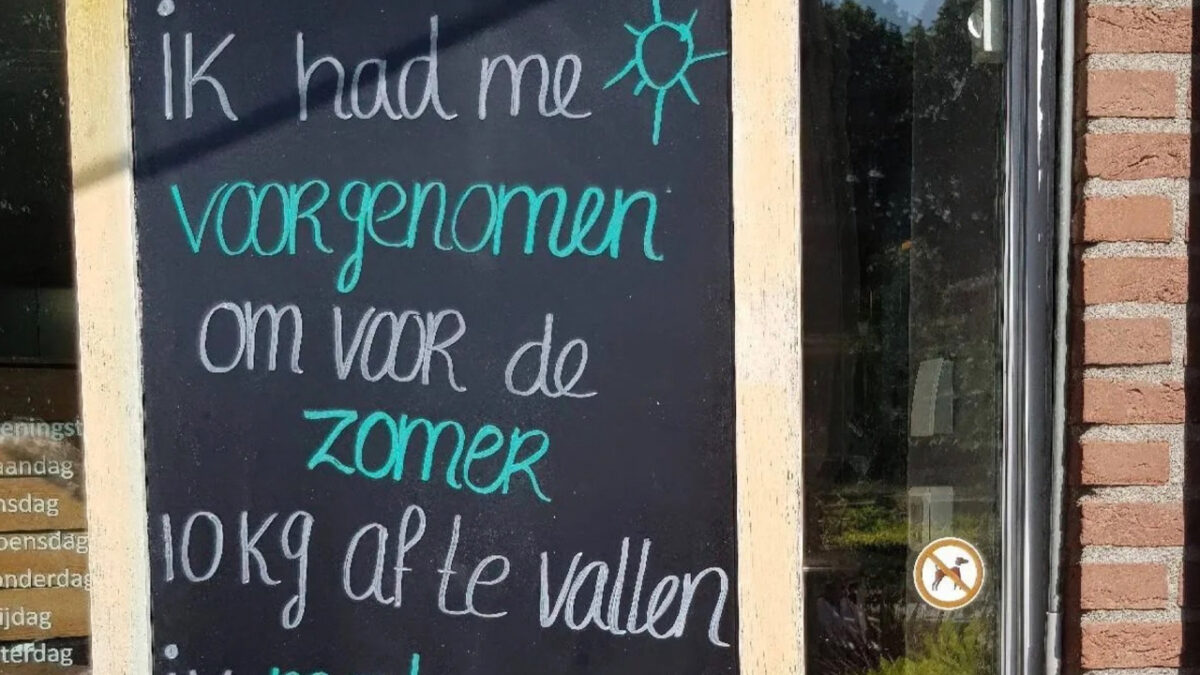 ik had me
voorgenomen
om voor de
zomer
10 kg af te vallen
eningst
aandag
nsdag
oensdag
onderdag
ijdag
terdag